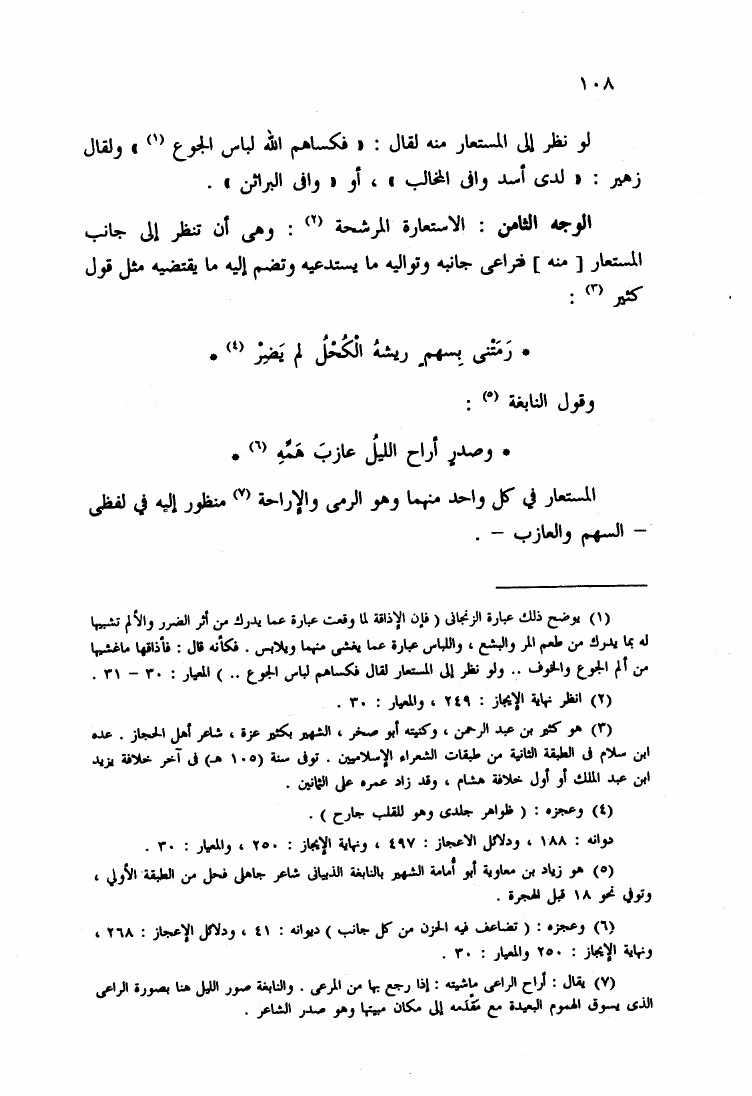 ١٠٨
لو نظر إلى المستعار منه لقال : « فكساهم الله لباس الجوع (١) » ولقال
زهير : « لدى أسد وافى المخالب » ، أو « وافى البراثن » .
الوجه الثامن : الاستعارة المرشحة (٢) : وهى أن تنظر إلى جانب
المستعار [ منه ] فتراعى جانبه وتواليه ما يستدعيه وتضم إليه ما يقتضيه مثل قول
كثير (٣) :
* رَمَتْنى بِسهمٍ ريشهُ الْكُحْلُ لم يَضِرْ (٤) *
وقول النابغة (٥) :
* وصدرٍ أراح الليلُ عازبَ هَمِّهِ (٦) *
المستعار في كل واحد منهما وهو الرمى والإراحة (٧) منظور إليه في لفظى
– السهم والعازب – .
(١) يوضح ذلك عبارة الزنجانى ( فإن الإذاقة لما وقعت عبارة عما يدرك من أثر الضرر والألم تشبيها
له بما يدرك من طعم المر والبشع ، واللباس عبارة عما يغشى منهما ويلابس . فكأنه قال : فأذاقها ماغشيها
من ألم الجوع والخوف .. ولو نظر إلى المستعار لقال فكساهم لباس الجوع .. ) المعيار : ٣٠ – ٣١ .
(٢) انظر نهاية الإيجاز : ٢٤٩ ، والمعيار : ٣٠ .
(٣) هو كثير بن عبد الرحمن ، وكنيته أبو صخر ، الشهير بكثير عزة ، شاعر أهل الحجاز . عده
ابن سلام فى الطبقة الثانية من طبقات الشعراء الإسلاميين . توفى سنة (١٠٥ هـ) فى آخر خلافة يزيد
ابن عبد الملك أو أول خلافة هشام ، وقد زاد عمره على الثمانين .
(٤) وعجزه : ( ظواهر جلدى وهو للقلب جارح ) .
دوانه : ١٨٨ ، ودلائل الاعجاز : ٤٩٧ ، ونهاية الإيجاز : ٢٥٠ ، والمعيار : ٣٠ .
(٥) هو زياد بن معاوية أبو أمامة الشهير بالنابغة الذبيانى شاعر جاهلى فحل من الطبقة الأولي ،
وتوفي نحو ١٨ قبل الهجرة .
(٦) وعجزه : ( تضاعف فيه الحزن من كل جانب ) ديوانه : ٤١ ، ودلائل الإعجاز : ٢٦٨ ،
ونهاية الإيجاز : ٢٥٠ والمعيار : ٣٠ .
(٧) يقال : أراح الراعى ماشيته : إذا رجع بها من المرعى . والنابغة صور الليل هنا بصورة الراعى
الذى يسوق الهموم البعيدة مع مَقْدَمه إلى مكان مبيتها وهو صدر الشاعر .